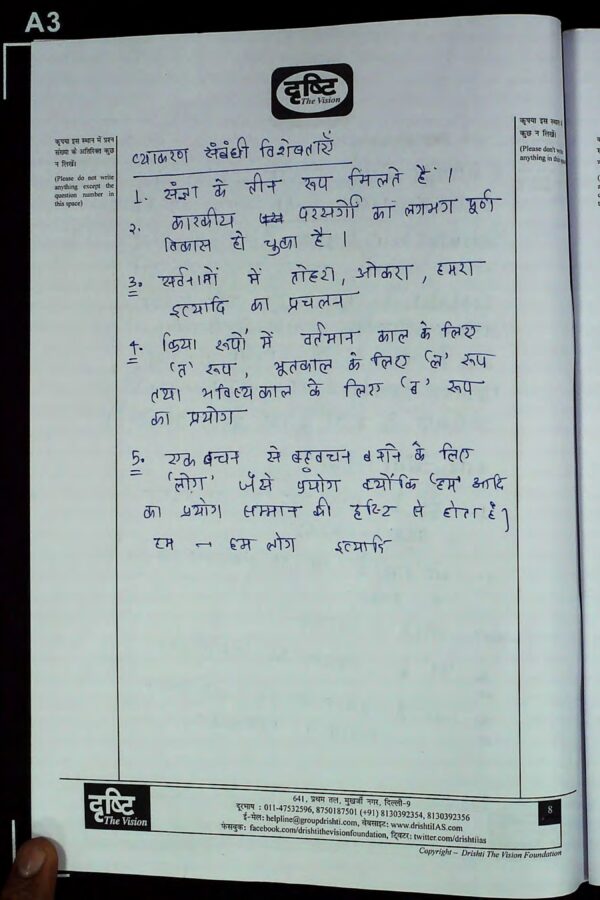 A3
दृष्टि
The Vision
कृपया इस स्थान में प्रश्न
संख्या के अतिरिक्त कुछ
न लिखें।
(Please do not write
anything except the
question number in
this space)
कृपया इस स्थान
कुछ न लिखें।
(Please don't
anything in this
व्याकरण संबंधी विशेषताएँ
1. संज्ञा के तीन रूप मिलते हैं।
2. कारकीय परसर्गों का लगभग पूर्ण
विकास हो चुका है।
3. सर्वनामों में तोहरा, ओकरा, हमरा
इत्यादि का प्रचलन
4. क्रिया रूपों में वर्तमान काल के लिए
'त' रूप, भूतकाल के लिए 'ल' रूप
तथा भविष्यकाल के लिए 'ब' रूप
का प्रयोग
5. एकबचन से बहुवचन बनाने के लिए
'लोग' जैसे प्रयोग क्योंकि 'हम' आदि
का प्रयोग सम्मान की दृष्टि से होता है।
हम → हम लोग इत्यादि
दृष्टि
The Vision
641, प्रथम तल, मुखर्जी नगर, दिल्ली-9
दूरभाष : 011-47532596, 8750187501 (+91) 8130392354, 8130392356
ई-मेल: helpline@groupdrishti.com, वेबसाइट: www.drishtiIAS.com
फेसबुक: facebook.com/drishtithevisionfoundation, ट्विटर: twitter.com/drishtiias
8
Copyright – Drishti The Vision Foundation
A3